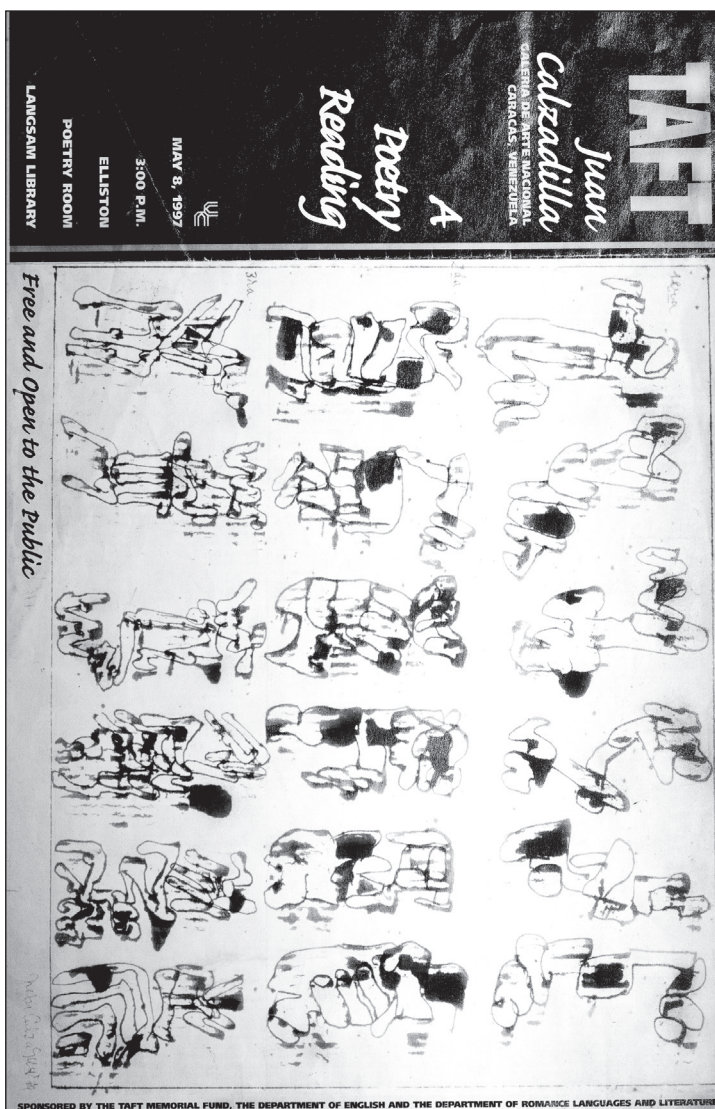 TAFT
Juan
Calzadilla
GALERIA DE ARTE NACIONAL
CARACAS, VENEZUELA
A
Poetry
Reading
UC
MAY 8, 1997
3:00 P.M.
ELLISTON
POETRY ROOM
LANGSAM LIBRARY
3ra
Free and Open to the Public
SPONSORED BY THE TAFT MEMORIAL FUND, THE DEPARTMENT OF ENGLISH AND THE DEPARTMENT OF ROMANCE LANGUAGES AND LITERATURE